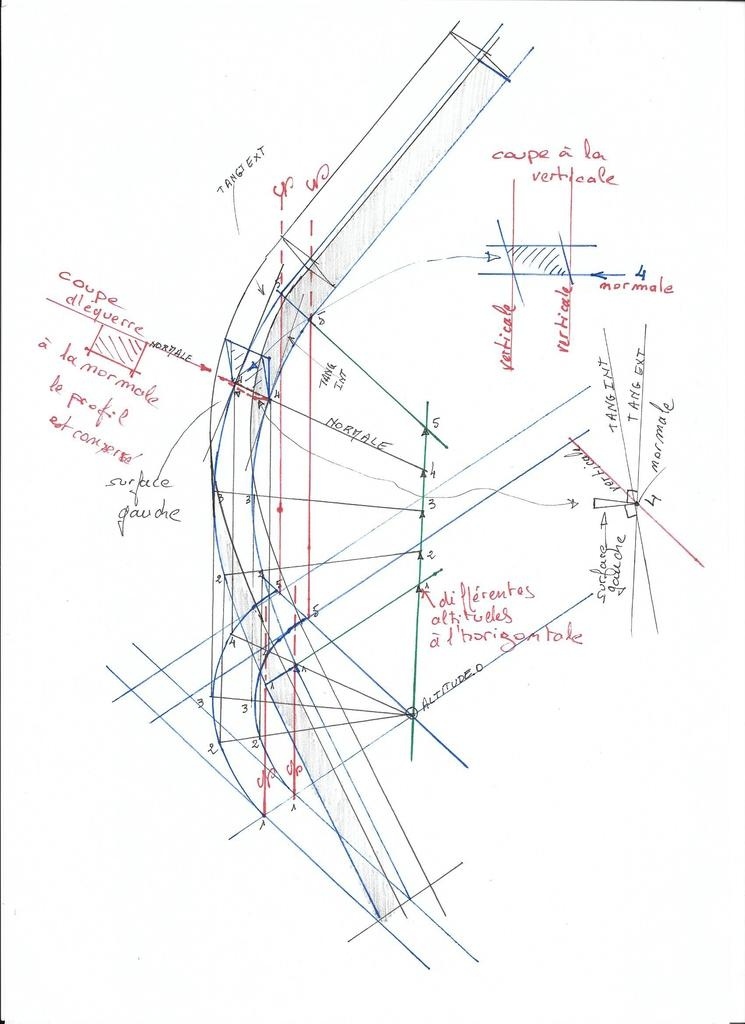 TANG EXT
coupe à la
verticale
verticale
verticale
4
normale
coupe
d'équerre
NORMALE
à la normale
le profil
est conservé
surface
gauche
5
5
TANG
INT
4
4
NORMALE
5
4
3
2
1
3
3
2
2
5
5
4
1
1
3
3
2
2
1
1
différentes
altitudes
à l'horizontale
ALTITUDE.0
TANG INT
TANG EXT
normale
verticale
4
surface
gauche